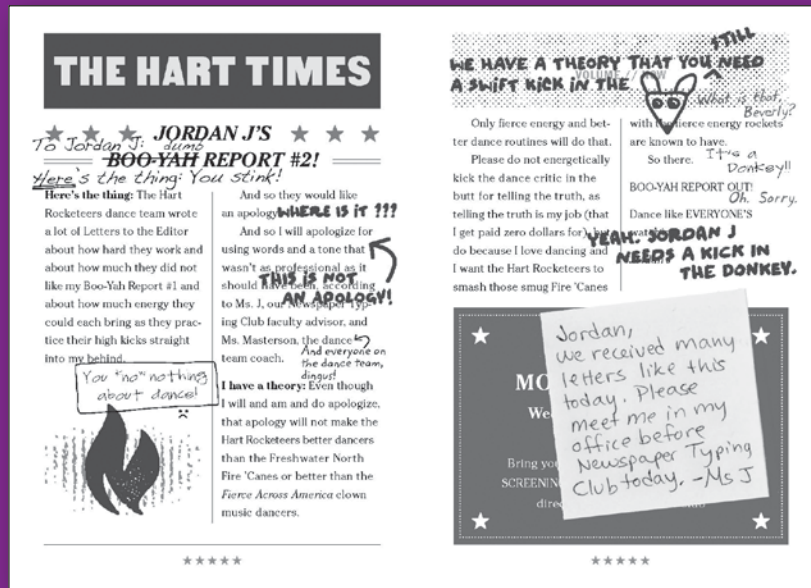 THE HART TIMES
To Jordan J:
JORDAN J'S
dumb
BOO-YAH REPORT #2!
Here's the thing: You stink!
Here's the thing: The Hart
Rocketeers dance team wrote
a lot of Letters to the Editor
about how hard they work and
about how much they did not
like my Boo-Yah Report #1 and
about how much energy they
could each bring as they prac-
tice their high kicks straight
into my behind.
You "no" nothing
about dance!
And so they would like
an apology
WHERE IS IT ???
And so I will apologize for
using words and a tone that
wasn't as professional as it
should have been, according
THIS IS NOT
AN APOLOGY!
to Ms. J, our Newspaper Typ-
ing Club faculty advisor, and
Ms. Masterson, the dance
team coach.
And everyone on
the dance team,
dingus!
I have a theory: Even though
I will and am and do apologize,
that apology will not make the
Hart Rocketeers better dancers
than the Freshwater North
Fire 'Canes or better than the
Fierce Across America clown
music dancers.
STILL
WE HAVE A THEORY THAT YOU NEED
A SWIFT KICK IN THE
VOLUME
What is that,
Beverly?
It's a
Donkey!!
Oh. Sorry.
Only fierce energy and bet-
ter dance routines will do that.
Please do not energetically
kick the dance critic in the
butt for telling the truth, as
telling the truth is my job (that
I get paid zero dollars for), but
do because I love dancing and
I want the Hart Rocketeers to
smash those smug Fire 'Canes
with the fierce energy rockets
are known to have.
So there.
BOO-YAH REPORT OUT!
Dance like EVERYONE'S
YEAH. JORDAN J
NEEDS A KICK IN
THE DONKEY.
MO
We
Bring yo
SCREENIN
dire
Jordan,
we received many
letters like this
today. Please
meet me in my
office before
Newspaper Typing
Club today. -Ms J